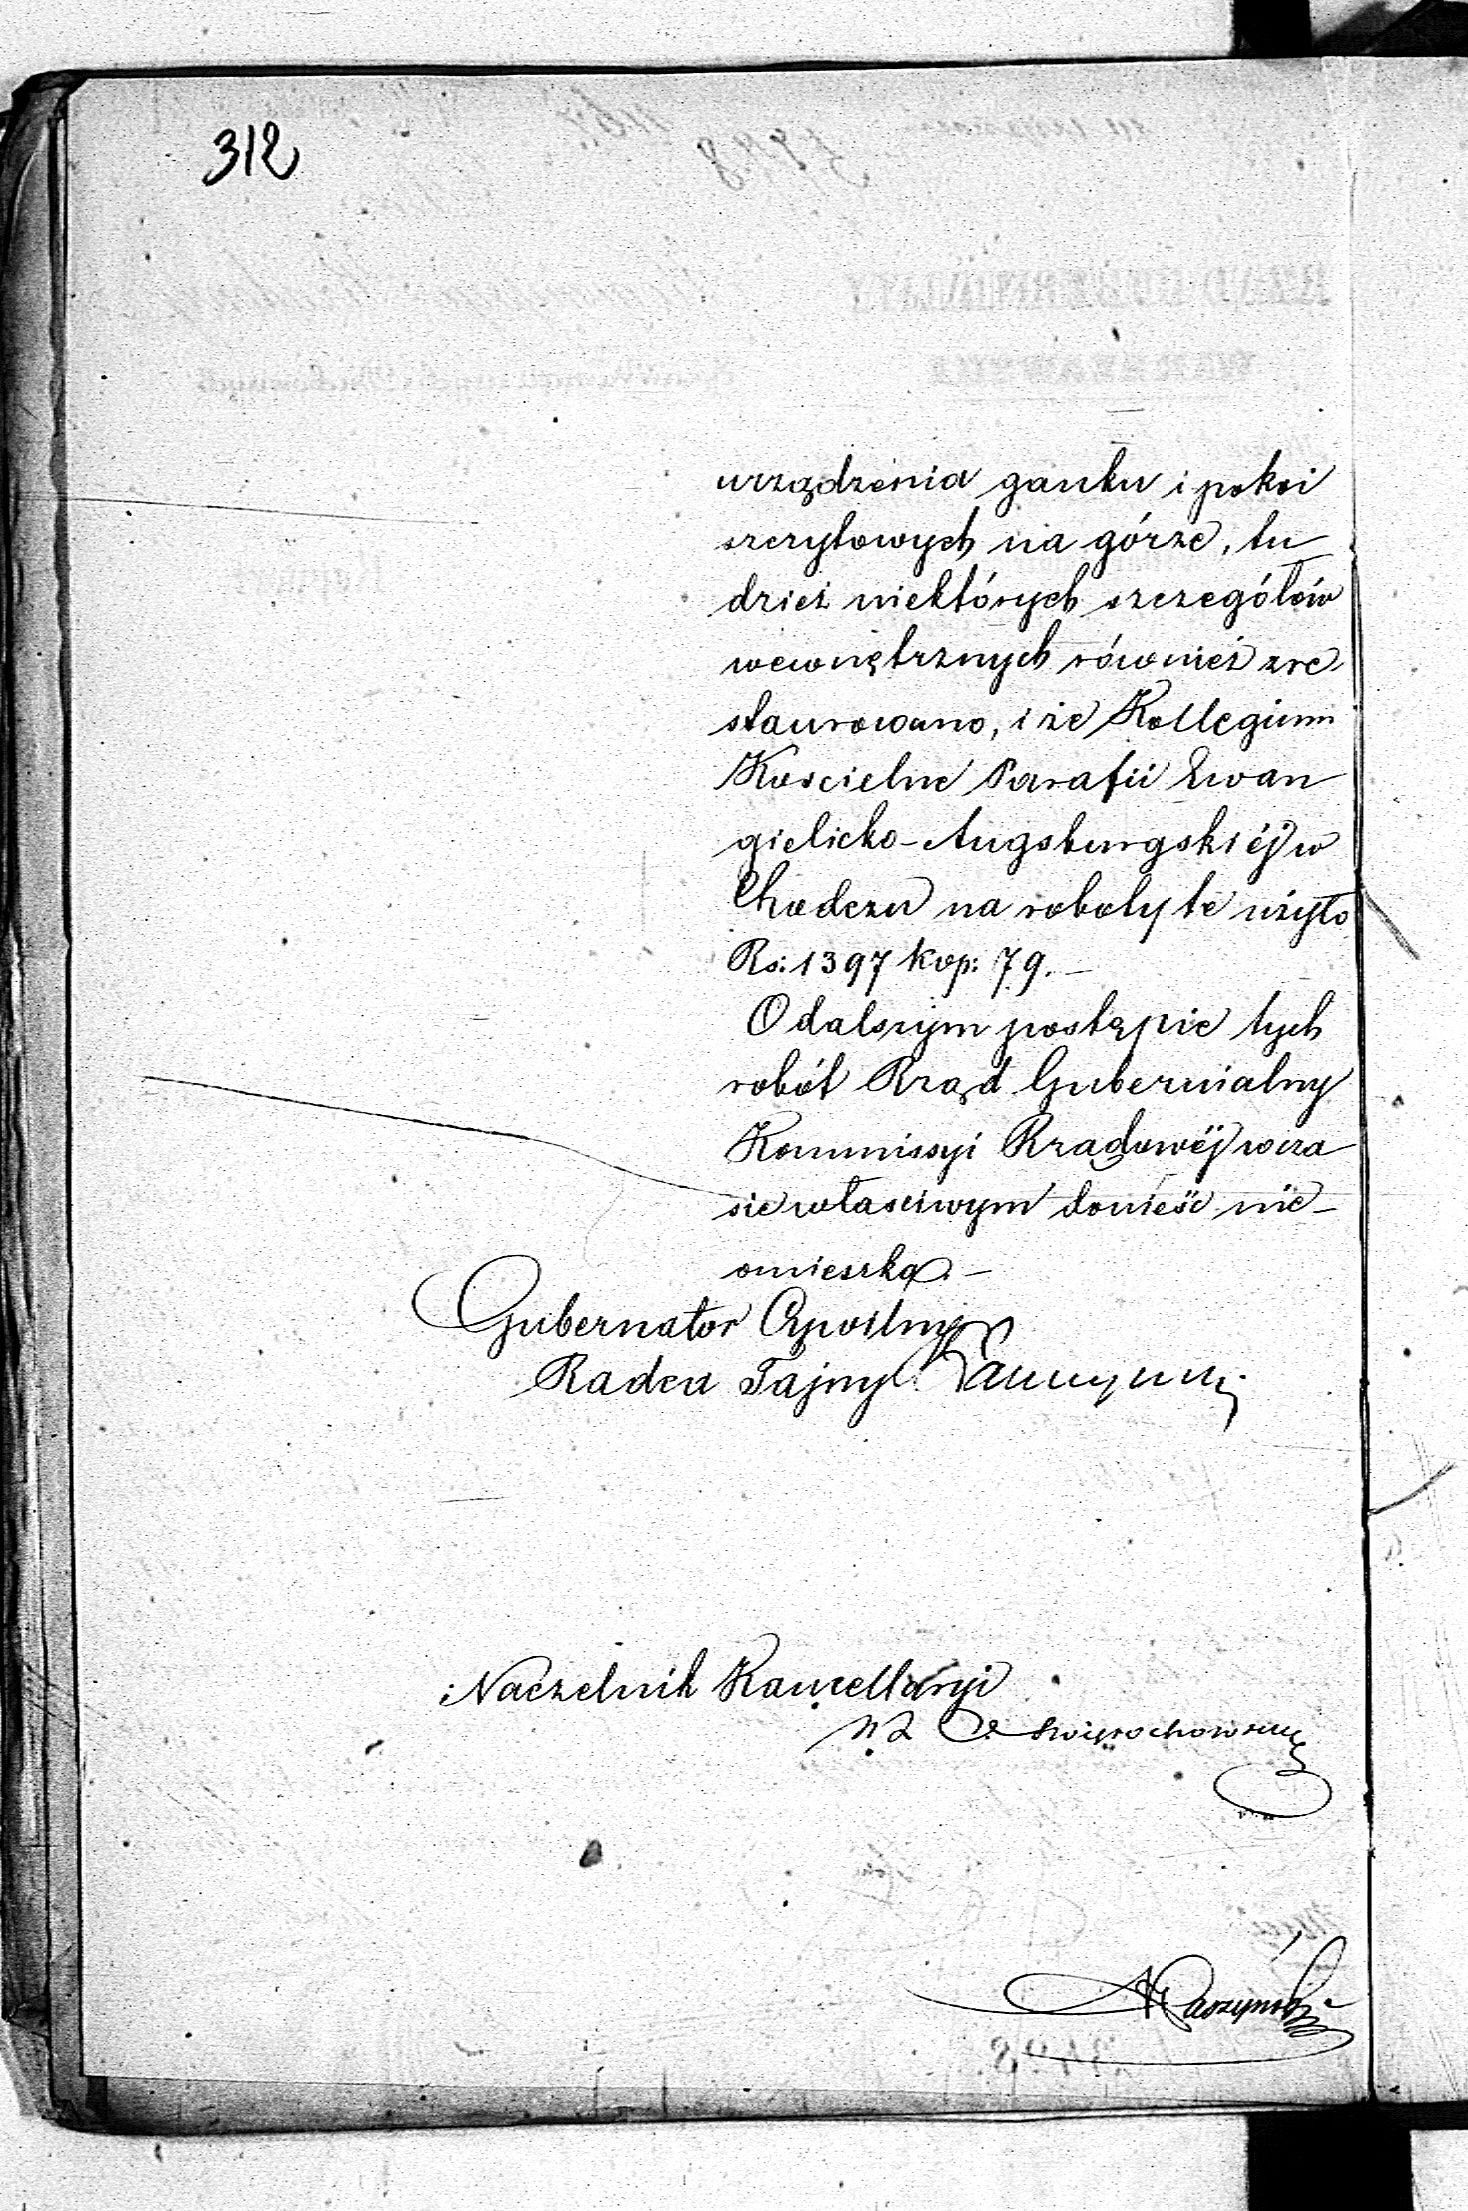 312
urządzenia ganku i pokoi
szczytowych na górze, tu
dzież niektórych szczegółów
wewnętrznych również zre
staurowano, i że Kollegium
Koscielne Parafii Ewan
gielicko-Augsburgskiéj w
Chodczu na roboty te użyto
Rs: 1397 kop: 79. —
O dalszym postępie tych
robót Rząd Gubernialny
Kommissyi Rządowéj w cza
sie właściwym donieść nie-
omieszka. —
Gubernator Cywilny
Radca Tajny Łaszczyński
Naczelnik Kancellaryi